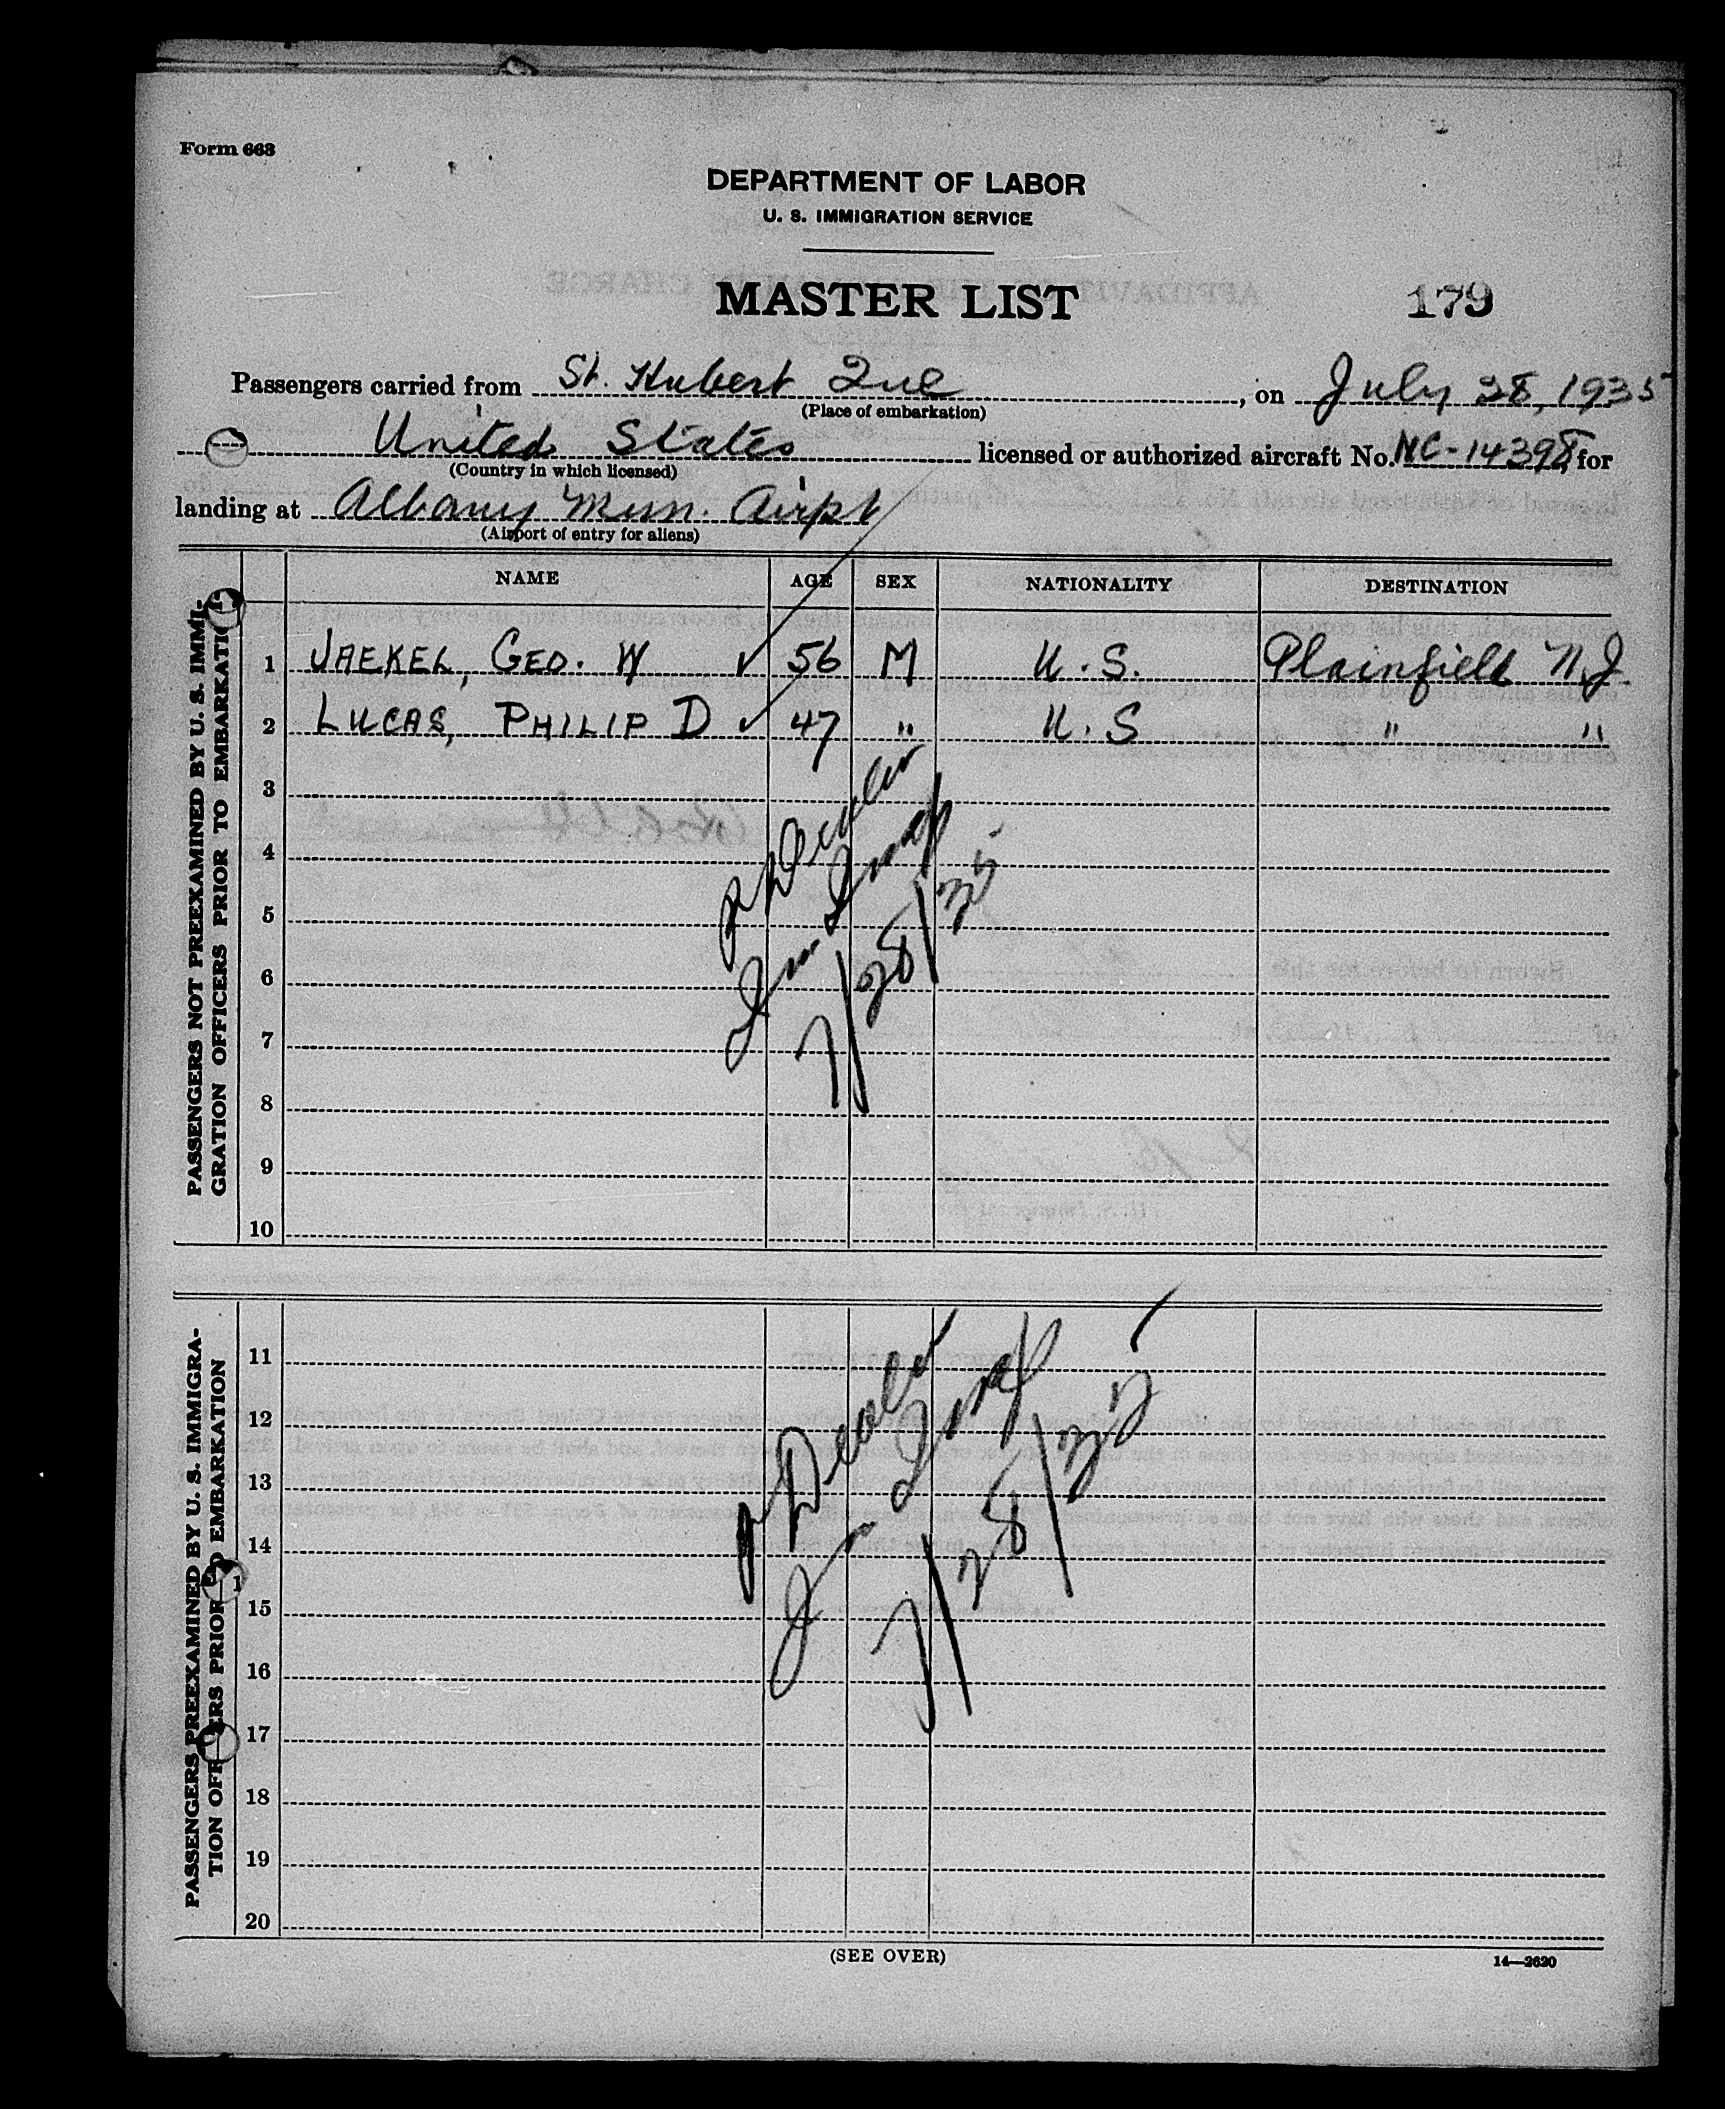 Form 663
DEPARTMENT OF LABOR
U. S. IMMIGRATION SERVICE
MASTER LIST 179
Passengers carried from St. Hubert Que, on July 28, 1935
(Place of embarkation)
United States licensed or authorized aircraft No. NC-14398, for
(Country in which licensed)
landing at Albany Mun. Airpt
(Airport of entry for aliens)
NAME AGE SEX NATIONALITY DESTINATION
PASSENGERS NOT PREEXAMINED BY U. S. IMMI-
GRATION OFFICERS PRIOR TO EMBARKATION
1 JAEKEL, GEO. W ✓ 56 M U.S. Plainfield N.J.
2 LUCAS, PHILIP D ✓ 47 " U.S " "
3
4
5
6
7
8
9
10
Imm Insp
7/28/35
PASSENGERS PREEXAMINED BY U. S. IMMIGRA-
TION OFFICERS PRIOR TO EMBARKATION
11
12
13
14
15
16
17
18
19
20
Imm Insp
7/28/35
(SEE OVER)
14—2620